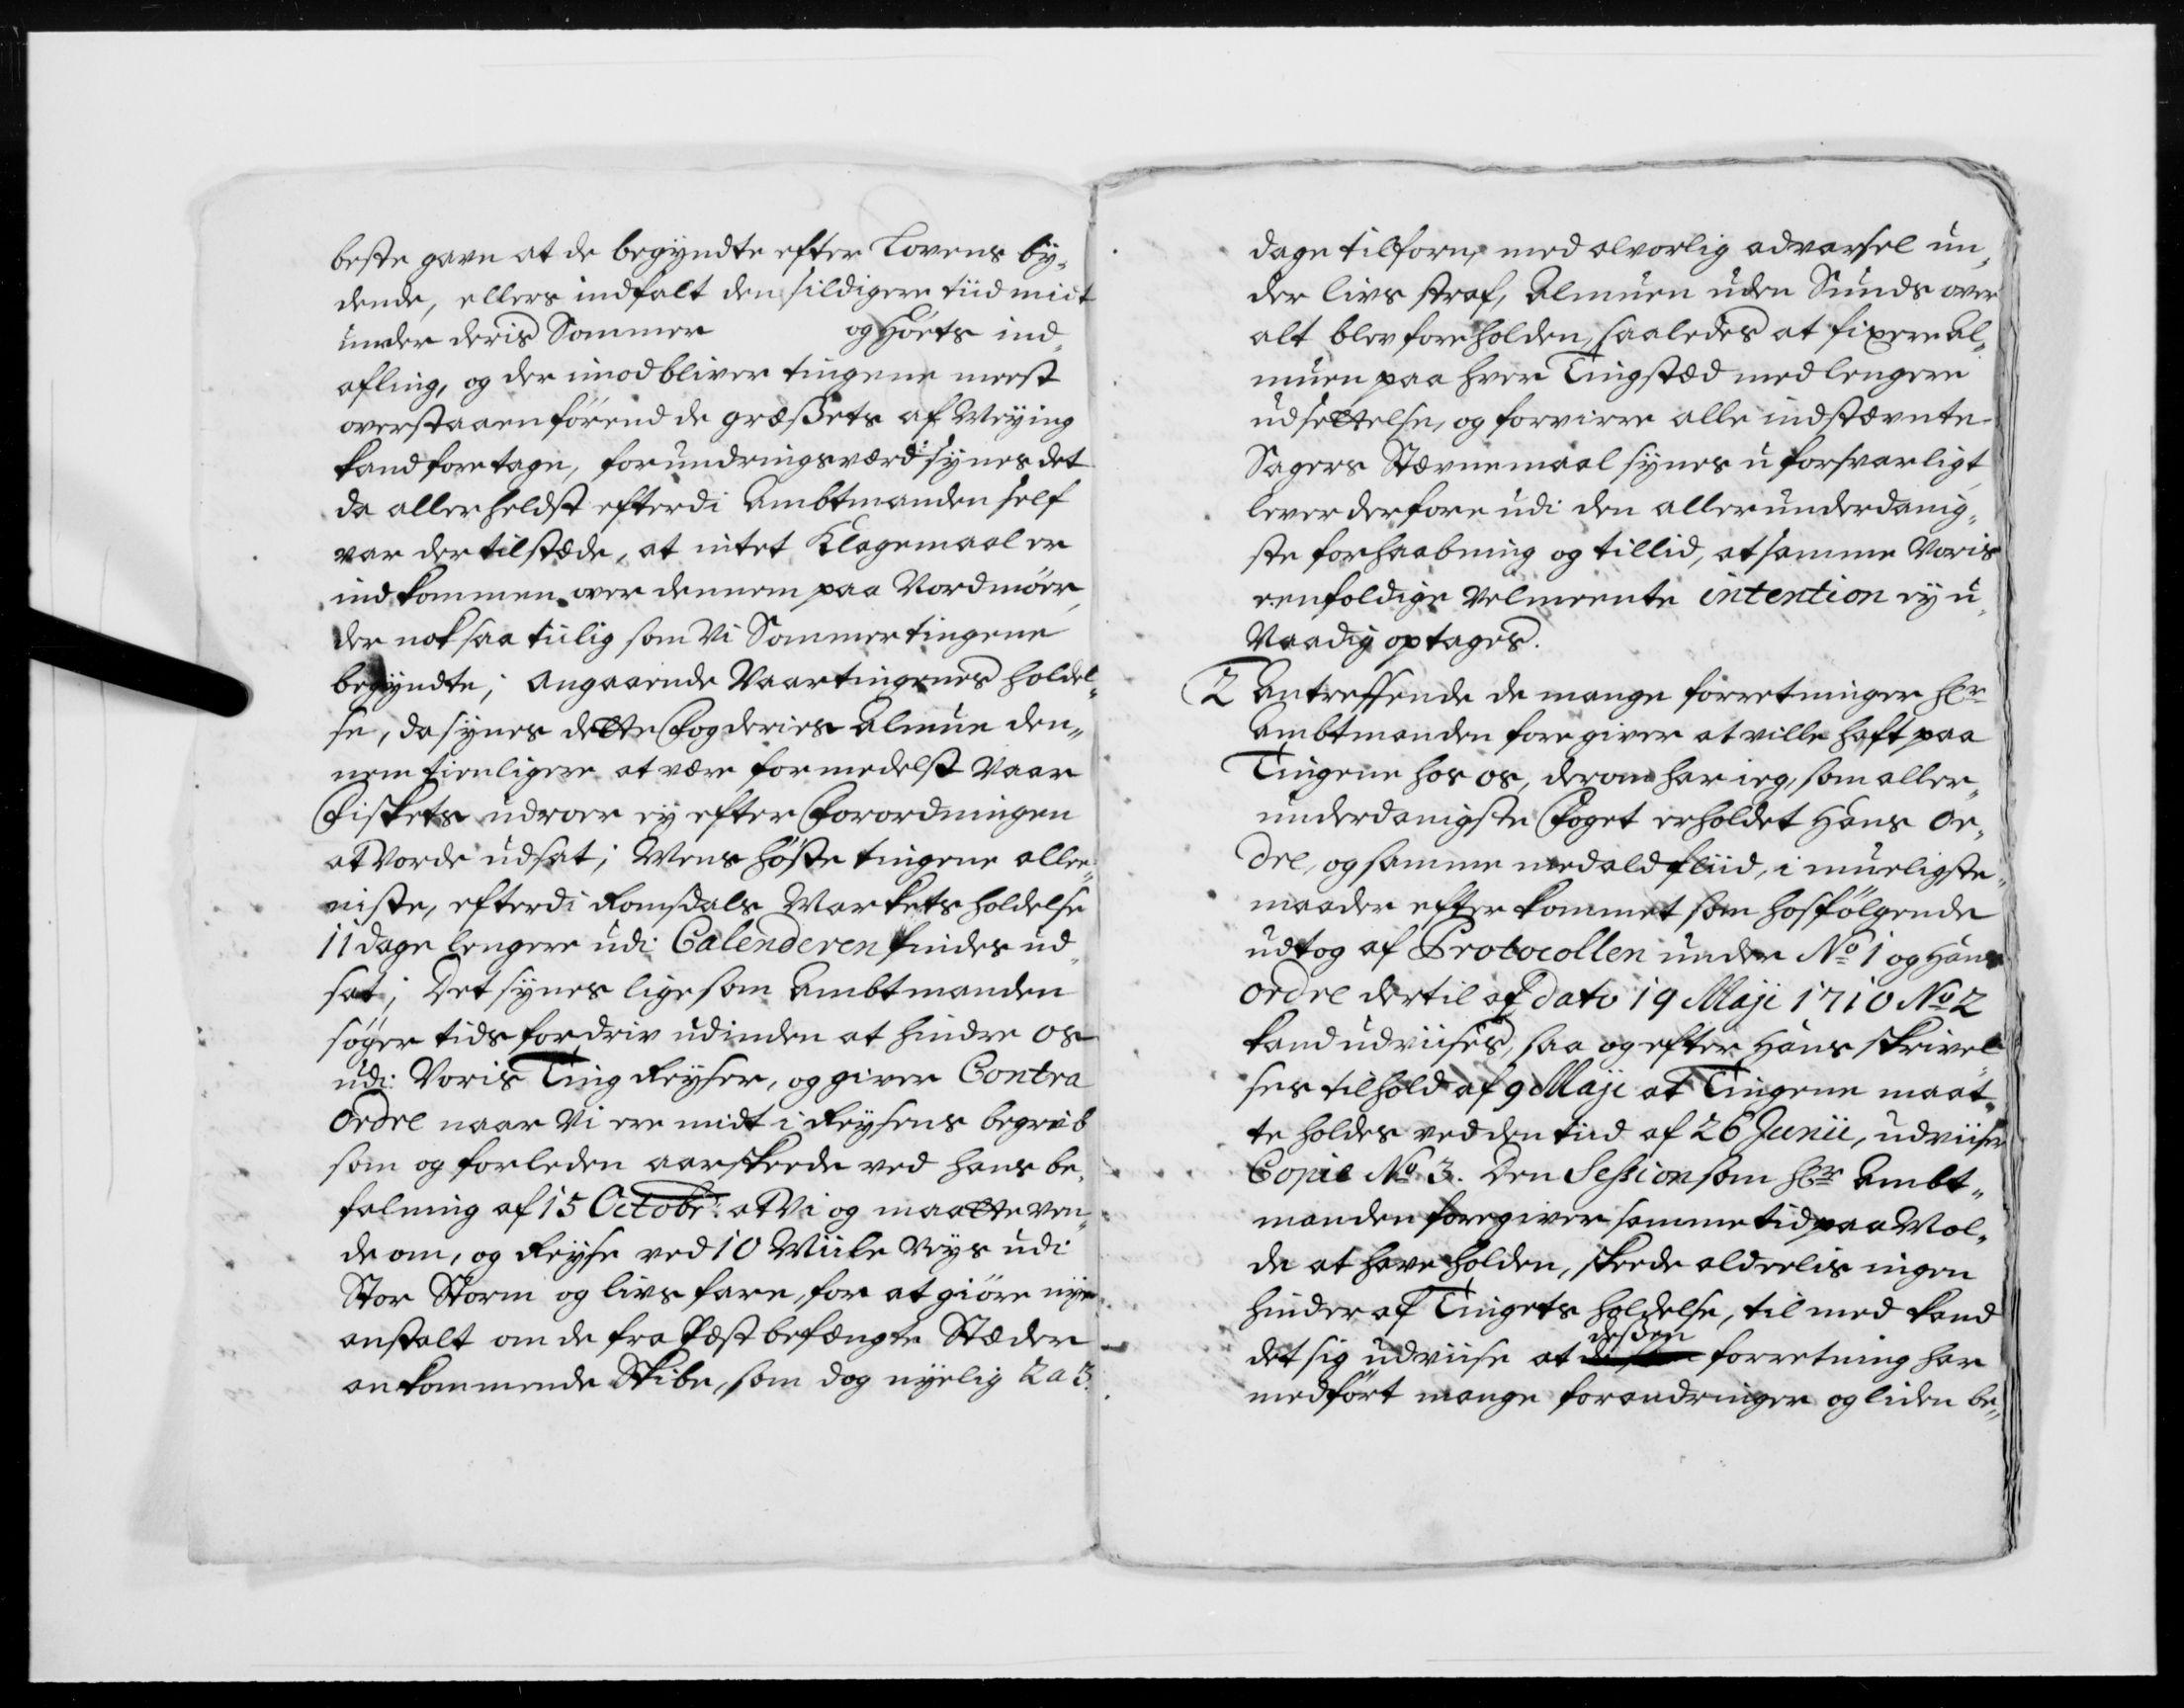 beste gavn at de begyndte efter Lovens by-
dende, ellers indfalt den sildigere tiid midt
under deris Sommer og Höets ind-
afling, og der imod bliver tingene meest
overstaaen förend de græssets af Meying
kand foretage, forundringsværd synes det
da allerheldst efterdi Ambtmanden self
var der tilstæde, at intet Klagemaal er
indkommen over dennem paa Nordmöer,
der nok saa tiilig som vi Sommertingene
begyndte; angaaende Vaartingenes holdel-
se, da synes dette Fogderies Almue den-
nem tienligere at være formedelst Vaar
Fiskets udroer ey efter Forordningen
at vorde udsat; Mens höste tingene aller-
niste, efterdi Romsdals Markets holdelse
11 dage lengere udi Calenderen findes ud-
sat; Det synes ligesom Ambtmanden
söger tids fordriv udinden at hindre os
udi voris Ting Reyser, og giver Contra
Ordre naar vi ere midt i Reysens begreb
som og forleden aar skeede ved hans be-
falning af 15 Octobr: at vi og maatte ven-
de om, og Reyse ved 10 Miile Veys udi
Stor Storm og livs fare, for at giöre nye
anstalt om de fra Pæst befængte Stæder
ankommende Skibe, som dog nyelig 2 a 3
dage tilforn, med alvorlig advarsel un-
der livs straf, Almuen uden Sunds over
alt blev foreholden, saaledes at fixere Al-
muen paa hver Tingstæd med lengere
udsettelse, og forvirre alle indstævnte
Sagers Stævnemaal synes u forsvarligt
lever derfore udi den allerunderdanig-
ste forhaabning og tillid, at samme voris
eenfoldige velmeente intention ey u-
Naadig optages.
2 Antreffende de mange forretninger Hr
Ambtmanden foregiver at ville haft paa
Tingene hos os, derom har ieg, som aller-
underdanigste Foget erholdet Hans Or-
dre, og samme med ald fliid, i mueligste
maader efterkommet som hosfölgende
udtog af Protocollen under No 1 og Hans
ordre dertil af dato 19 Maji 1710 No 2
kand udviises, saa og efter Hans skrivel-
ses tilhold af 9 Maji at Tingene maat-
te holdes ved den tiid af 26 Junii, udviiser
Copie No 3. Den Session som Hr Ambt-
manden foregiver samme tid paa Mol-
de at have holden, skeede alderlis ingen
hinder af Tingets holdelse, til med kand
det sig udviise at dessen forretning har
medfört mange forandringer og liden be-